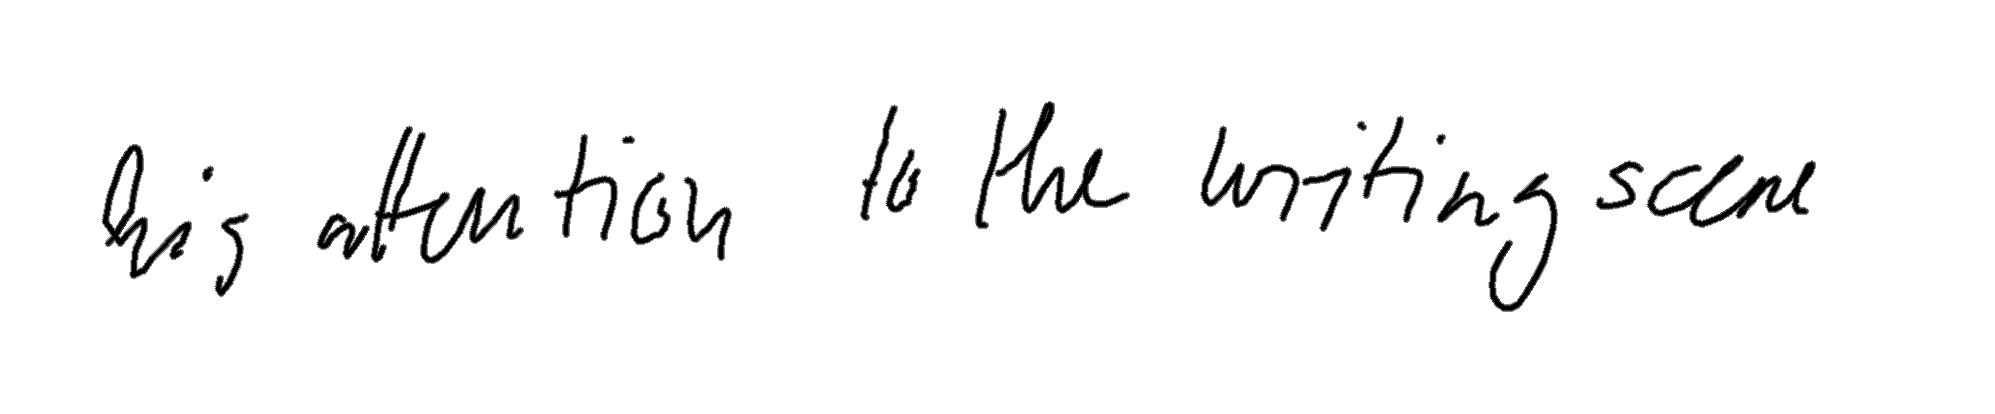 his attention to the writing scene